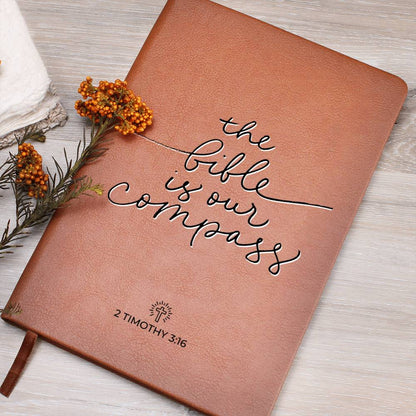 the
bible
is our
compass
2 TIMOTHY 3:16